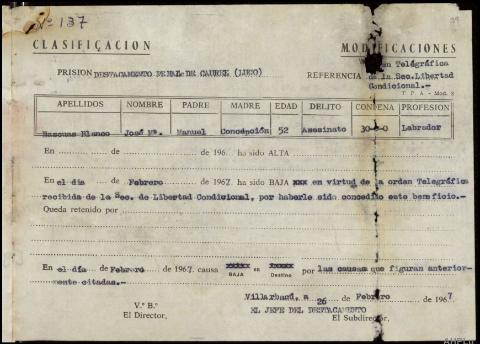 Nº 137
CLASIFICACION
MODIFICACIONES
PRISION DESTACAMENTO PENAL DE CAUREL (LUGO)
REFERENCIA
en Telégráfica
de la Sec. Libertad
Condicional.-
T P A - Mod. 8
APELLIDOS NOMBRE PADRE MADRE EDAD DELITO CONDENA PROFESION
Blanco José Mª. Manuel Concepción 52 Asesinato 30-0-0 Labrador
En de de 196 ha sido ALTA
En el día Febrero 1967. ha sido BAJA xxx en virtud de la orden Telegráfica
recibida de la Sec. de Libertad Condicional, por haberle sido concedido este beneficio.-
Queda retenido por
En el día de Febrero de 1967. causa xxxxx en xxxxx por las causas que figuran anterior-
BAJA Destino
mente citadas.-
a 26 de Febrero de 1967
V.º B.º EL JEFE DEL DESTACAMENTO
El Director, El Subdirector,